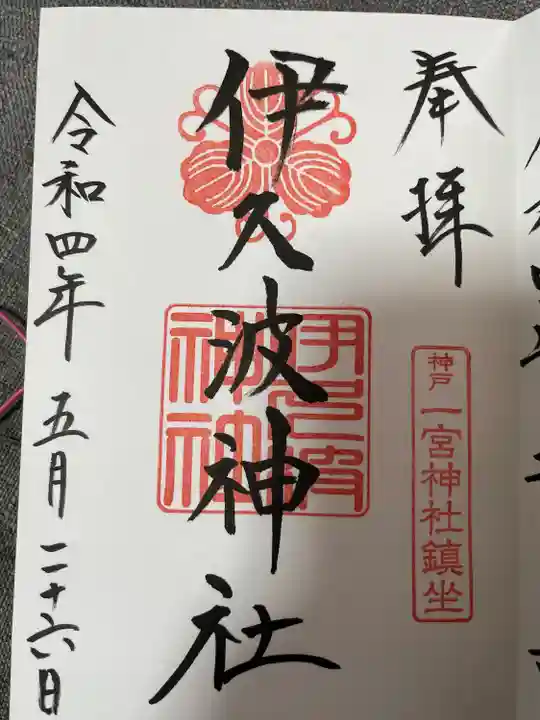 奉拝
神戸 一宮神社鎮坐
伊久波神社
伊久波神社
令和四年 五月 二十六日